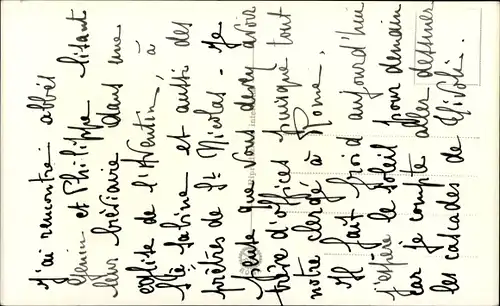 J'ai rencontré abbés
Genin et Philippe lisant
leur bréviaire dans une
église de l'Aventin, à
Ste Sabine et aussi des
prêtres de St Nicolas - Je
pense que vous devez avoir
peu d'offices puisque tout
notre clergé à Rome.
Il fait froid aujourd'hui
j'espère le soleil pour demain
car je compte aller dessiner
les cascades de Tivoli.